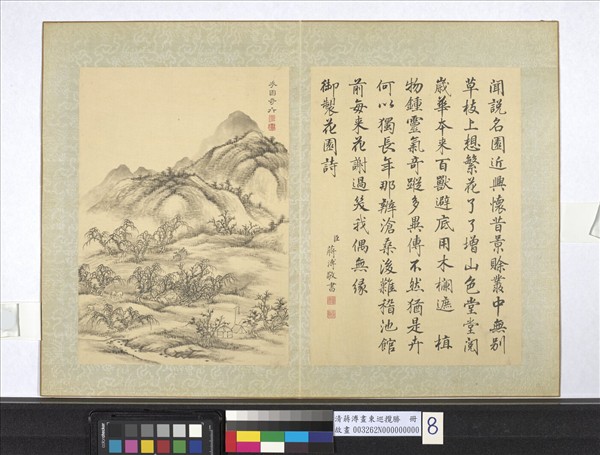 聞說名園近興懷昔景賒叢中無別
草枝上想繁花了了增山色堂堂閱
歲華本来百獸避底用木欄遮 植
物鍾靈氣奇蹤多異傳不然猶是卉
何以獨長年那辨滄桑後難稽池館
前每来花謝過笑我偶無緣
御製花園詩
臣蔣溥敬書
清蔣溥畫東巡攬勝 冊
故畫 003262N000000000
8